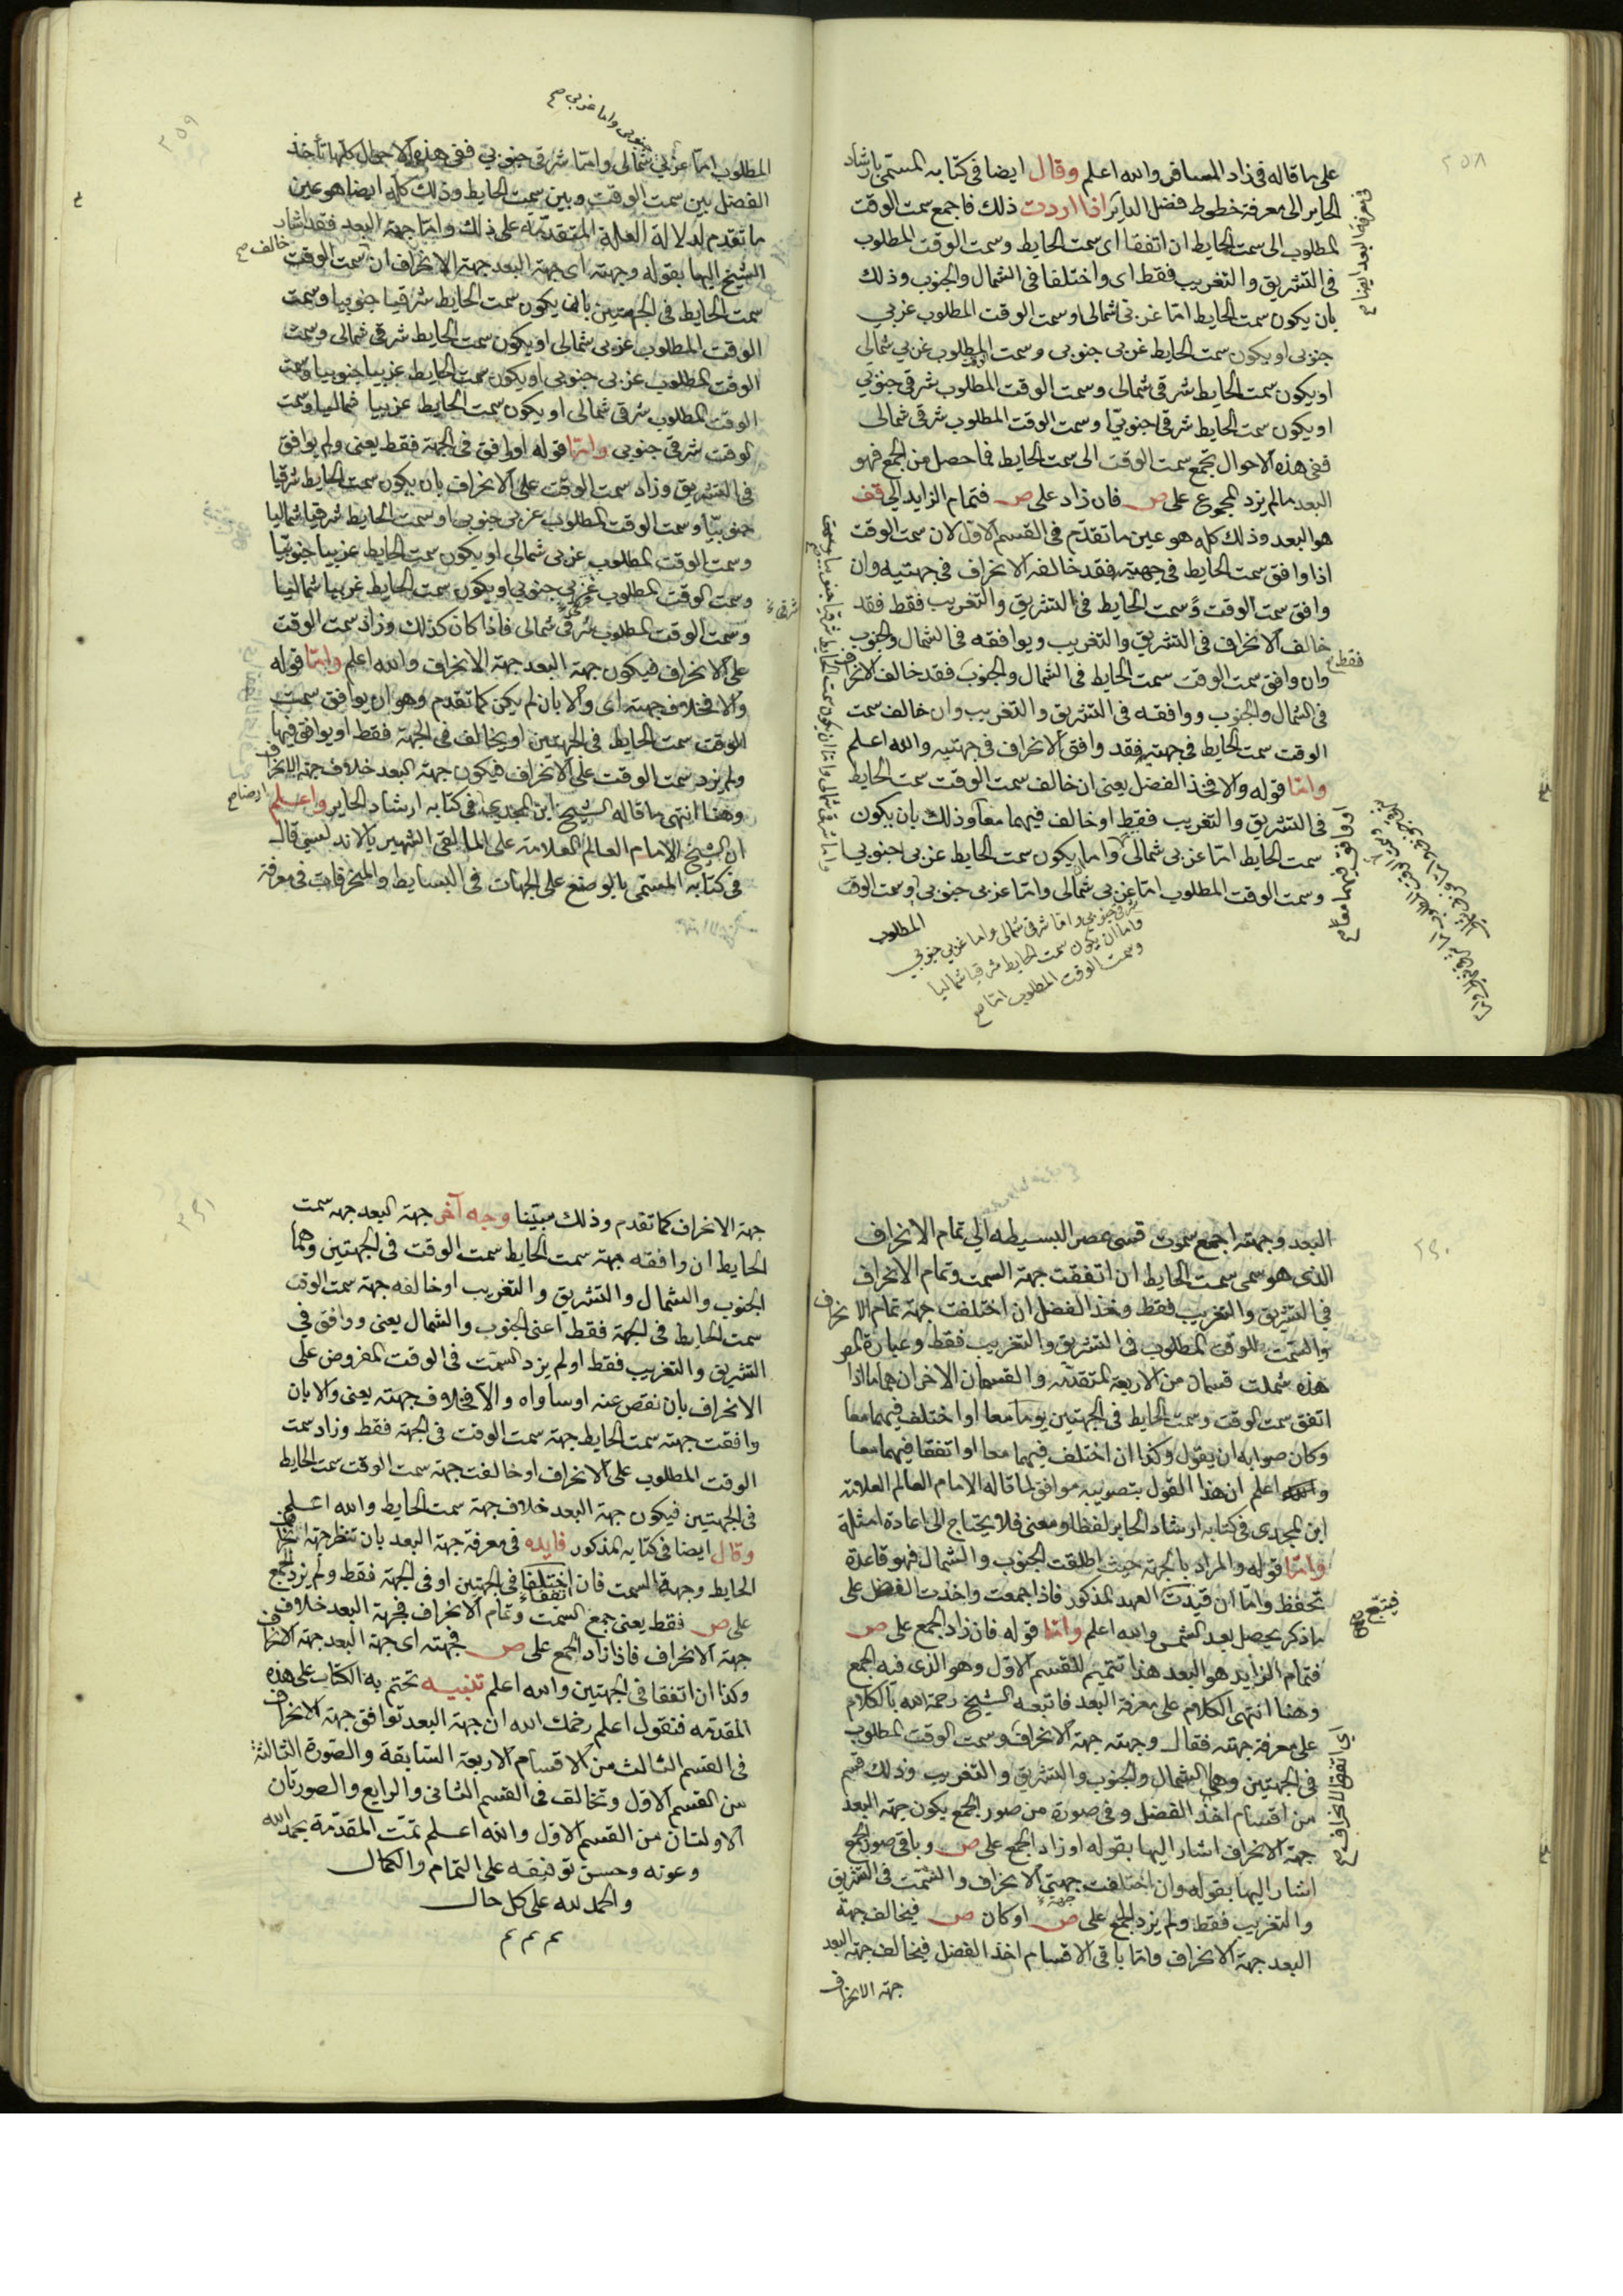 ٢٥٨
على ما قاله فى زاد المسافر والله اعلم وقال ايضا فى كتابه المسمى بارشاد
الحاير الى معرفة خطوط فضل الداير اذا اردت ذلك فاجمع سمت الوقت
المطلوب الى سمت الحايط ان اتفقا اى سمت الحايط وسمت الوقت المطلوب
فى التشريق والتغريب فقط اى واختلفا فى الشمال والجنوب وذلك
بان يكون سمت الحايط اما غربى شمالى وسمت الوقت المطلوب غربي
جنوبى او يكون سمت الحايط غربى جنوبى وسمت المطلوب غربي شمالى
او يكون سمت الحايط شرقى شمالى وسمت الوقت المطلوب شرقى جنوبي
او يكون سمت الحايط شرقى جنوبيّا وسمت الوقت المطلوب شرقى شمالى
ففى هذه الاحوال تجمع سمت الوقت الى سمت الحايط فما حصل من الجمع فهو
البعد مالم يزد المجموع على ص فان زاد على ص فتمام الزايد الى قف
هو البعد وذلك كله هو عين ما تقدم فى القسم الاول لان سمت الوقت
اذا وافق سمت الحايط فى جهتيه فقد خالفه الانحراف فى جهتيه وان
وافق سمت الوقت وسمت الحايط فى التشريق والتغريب فقط فقد
خالف الانحراف فى التشريق والتغريب ويوافقه فى الشمال والجنوب
فقط صح
وان وافق سمت الوقت سمت الحايط فى الشمال والجنوب فقد خالف الانحراف
فى الشمال والجنوب ووافقه فى التشريق والتغريب وان خالف سمت
الوقت سمت الحايط فى جهتيه فقد وافق الانحراف فى جهتيه والله اعلم
واما قوله والا فخذ الفضل يعنى ان خالف سمت الوقت سمت الحايط
فى التشريق والتغريب فقط او خالف فيهما معا وذلك بان يكون
سمت الحايط اما غربى شمالى واما يكون سمت الحايط غربى جنوبيا
وسمت الوقت المطلوب اما غربى شمالى واما غربى جنوبى وسمت الوقت
المطلوب
فى معرفة البعد ايضا صح
او وافق فيهما معا صح
شرقى جنوبى واما شرقى شمالى واما غربى جنوبي
واما ان يكون سمت الحايط شرقيا شماليا
وسمت الوقت المطلوب اما صح
٢٥٩
المطلوب اما غربى شمالى واما شرقى جنوبي ففى هذه الاحوال كلها تأخذ
جنوبى واما غربى صح
الفضل بين سمت الوقت وبين سمت الحايط وذلك كله ايضا هو عين
ما تقدم لدلالة العلة المتقدمة على ذلك واما جهة البعد فقد اشار
الشيخ اليها بقوله وجهته اى جهة البعد جهة الانحراف ان سمت الوقت
خالف صح
سمت الحايط فى الجهتين بان يكون سمت الحايط شرقيا جنوبيا وسمت
الوقت المطلوب غربى شمالى او يكون سمت الحايط شرقى شمالى وسمت
الوقت المطلوب غربى جنوبى او يكون سمت الحايط غربيا جنوبيا وسمت
الوقت المطلوب شرقى شمالى او يكون سمت الحايط غربيا شماليا وسمت
الوقت شرقى جنوبى واما قوله او وافق فى الجهة فقط يعنى ولم يوافق
فى التشريق وزاد سمت الوقت على الانحراف بان يكون سمت الحايط شرقيا
جنوبيّا وسمت الوقت المطلوب غربى جنوبى او سمت الحايط شرقيا شماليا
وسمت الوقت المطلوب غربى شمالى او يكون سمت الحايط غربيا جنوبيّا
وسمت الوقت المطلوب غربى جنوبى او يكون سمت الحايط غربيا شماليا
شرقى
وسمت الوقت المطلوب شرقى شمالى فاذا كان كذلك وزاد سمت الوقت
على الانحراف فيكون جهة البعد جهة الانحراف والله اعلم واما قوله
والا فخلاف جهته اى والا بان لم يكن كما تقدم وهو ان يوافق سمت
الوقت سمت الحايط فى الجهتين او يخالف فى الجهة فقط او يوافق فيها
ولم يزد سمت الوقت على الانحراف فيكون جهة البعد خلاف جهة الانحراف
وهنا انتهى ما قاله الشيخ ابن المجدى فى كتابه ارشاد الحاير واعلم
ايضا صح
ان الشيخ الامام العالم العلامة على المالقى الشهير بالاندلسى قال
فى كتابه المسمى بالوضع على الجهات فى البسايط والمنحرفات فى معرفة
٢٦٠
البعد وجهته اجمع سموت قسى عصر البسيطه الى تمام الانحراف
الذى هو سمى سمت الحايط ان اتفقت جهة السمت وتمام الانحراف
في التشريق والتغريب فقط وخذ الفضل ان اختلفت جهة تمام الانحراف
والسمت للوقت المطلوب فى التشريق والتغريب فقط وعبارة المص
هذه شملت قسمان من الاربعة المتقدمه والقسمان الاخران هما ما اذا
اتفق سمت الوقت وسمت الحايط فى الجهتين يوما معا او اختلف فيهما معا
وكان صوابه ان يقول وكذا ان اختلف فيهما معا او اتفقا فيهما معا
واعلم ان هذا القول بتصويبه موافق لما قاله الامام العالم العلامة
ابن المجدى فى كتابه ارشاد الحاير لفظا ومعنى فلا يحتاج الى اعادة امثلة
واما قوله والمراد بالجهة حيث اطلقت الجنوب والشمال فهو قاعدة
تحفظ واما ان قيدت العهد المذكور فاذا جمعت واخذت الفضل على
فيتبع صح
ما ذكر يحصل بعد الشمس والله اعلم واما قوله فان زاد الجمع على ص
فتمام الزايد هو البعد هذا تتميم للقسم الاول وهو الذى فيه الجمع
وهنا انتهى الكلام على معرفة البعد فاتبعه الشيخ رحمه الله بالكلام
على معرفة جهته فقال وجهته جهة الانحراف وسمت الوقت المطلوب
اى اتفق الانحراف صح
فى الجهتين وهى الشمال والجنوب والتشريق والتغريب وذلك قسم
من اقسام اخذ الفضل وفى صورة من صور الجمع يكون جهة البعد
جهة الانحراف اشار اليها بقوله او زاد الجمع على ص وباقى صور الجمع
اشار اليها بقوله وان اختلفت جهتى الانحراف والسمت فى التشريق
والتغريب فقط ولم يزد الجمع على ص او كان ص فيخالف جهة
البعد جهة الانحراف واما باقى الاقسام اخذ الفضل فيخالف جهة البعد
جهة الانحراف
٢٦١
جهة الانحراف كما تقدم وذلك مبينا وجه آخر جهة البعد جهة سمت
الحايط ان وافقه جهة سمت الحايط سمت الوقت فى الجهتين وهما
الجنوب والشمال والتشريق والتغريب او خالفه جهة سمت الوقت
سمت الحايط فى الجهة فقط اعنى الجنوب والشمال يعنى ووافق فى
التشريق والتغريب فقط او لم يزد السمت فى الوقت المفروض على
الانحراف بان نقص عنه او ساواه والا فخلاف جهته يعنى والا بان
وافقت جهته سمت الحايط جهة سمت الوقت فى الجهة فقط وزاد سمت
الوقت المطلوب على الانحراف او خالفت جهة سمت الوقت سمت الحايط
فى الجهتين فيكون جهة البعد خلاف جهة سمت الحايط والله اعلم
وقال ايضا فى كتابه المذكور فايده فى معرفة جهة البعد بان تنظر جهة انحراف
الحايط وجهة السمت فان اختلفا فى الجهتين او فى الجهة فقط ولم يزد الجمع
اتفقا
على ص فقط يعنى جمع السمت وتمام الانحراف فجهة البعد خلاف
جهة الانحراف فاذا زاد الجمع على ص فجهته اى جهة البعد جهة الانحراف
وكذا ان اتفقا فى الجهتين والله اعلم تنبيه تختم به الكتاب على هذه
المقدمه فنقول اعلم رحمك الله ان جهة البعد توافق جهة الانحراف
فى القسم الثالث من الاقسام الاربعة السابقة والصورة الثالثة
من القسم الاول وتخالف فى القسم الثانى والرابع والصورتان
الاولتان من القسم الاول والله اعلم تمت المقدمة بحمد الله
وعونه وحسن توفيقه على التمام والكمال
والحمد لله على كل حال
م م م